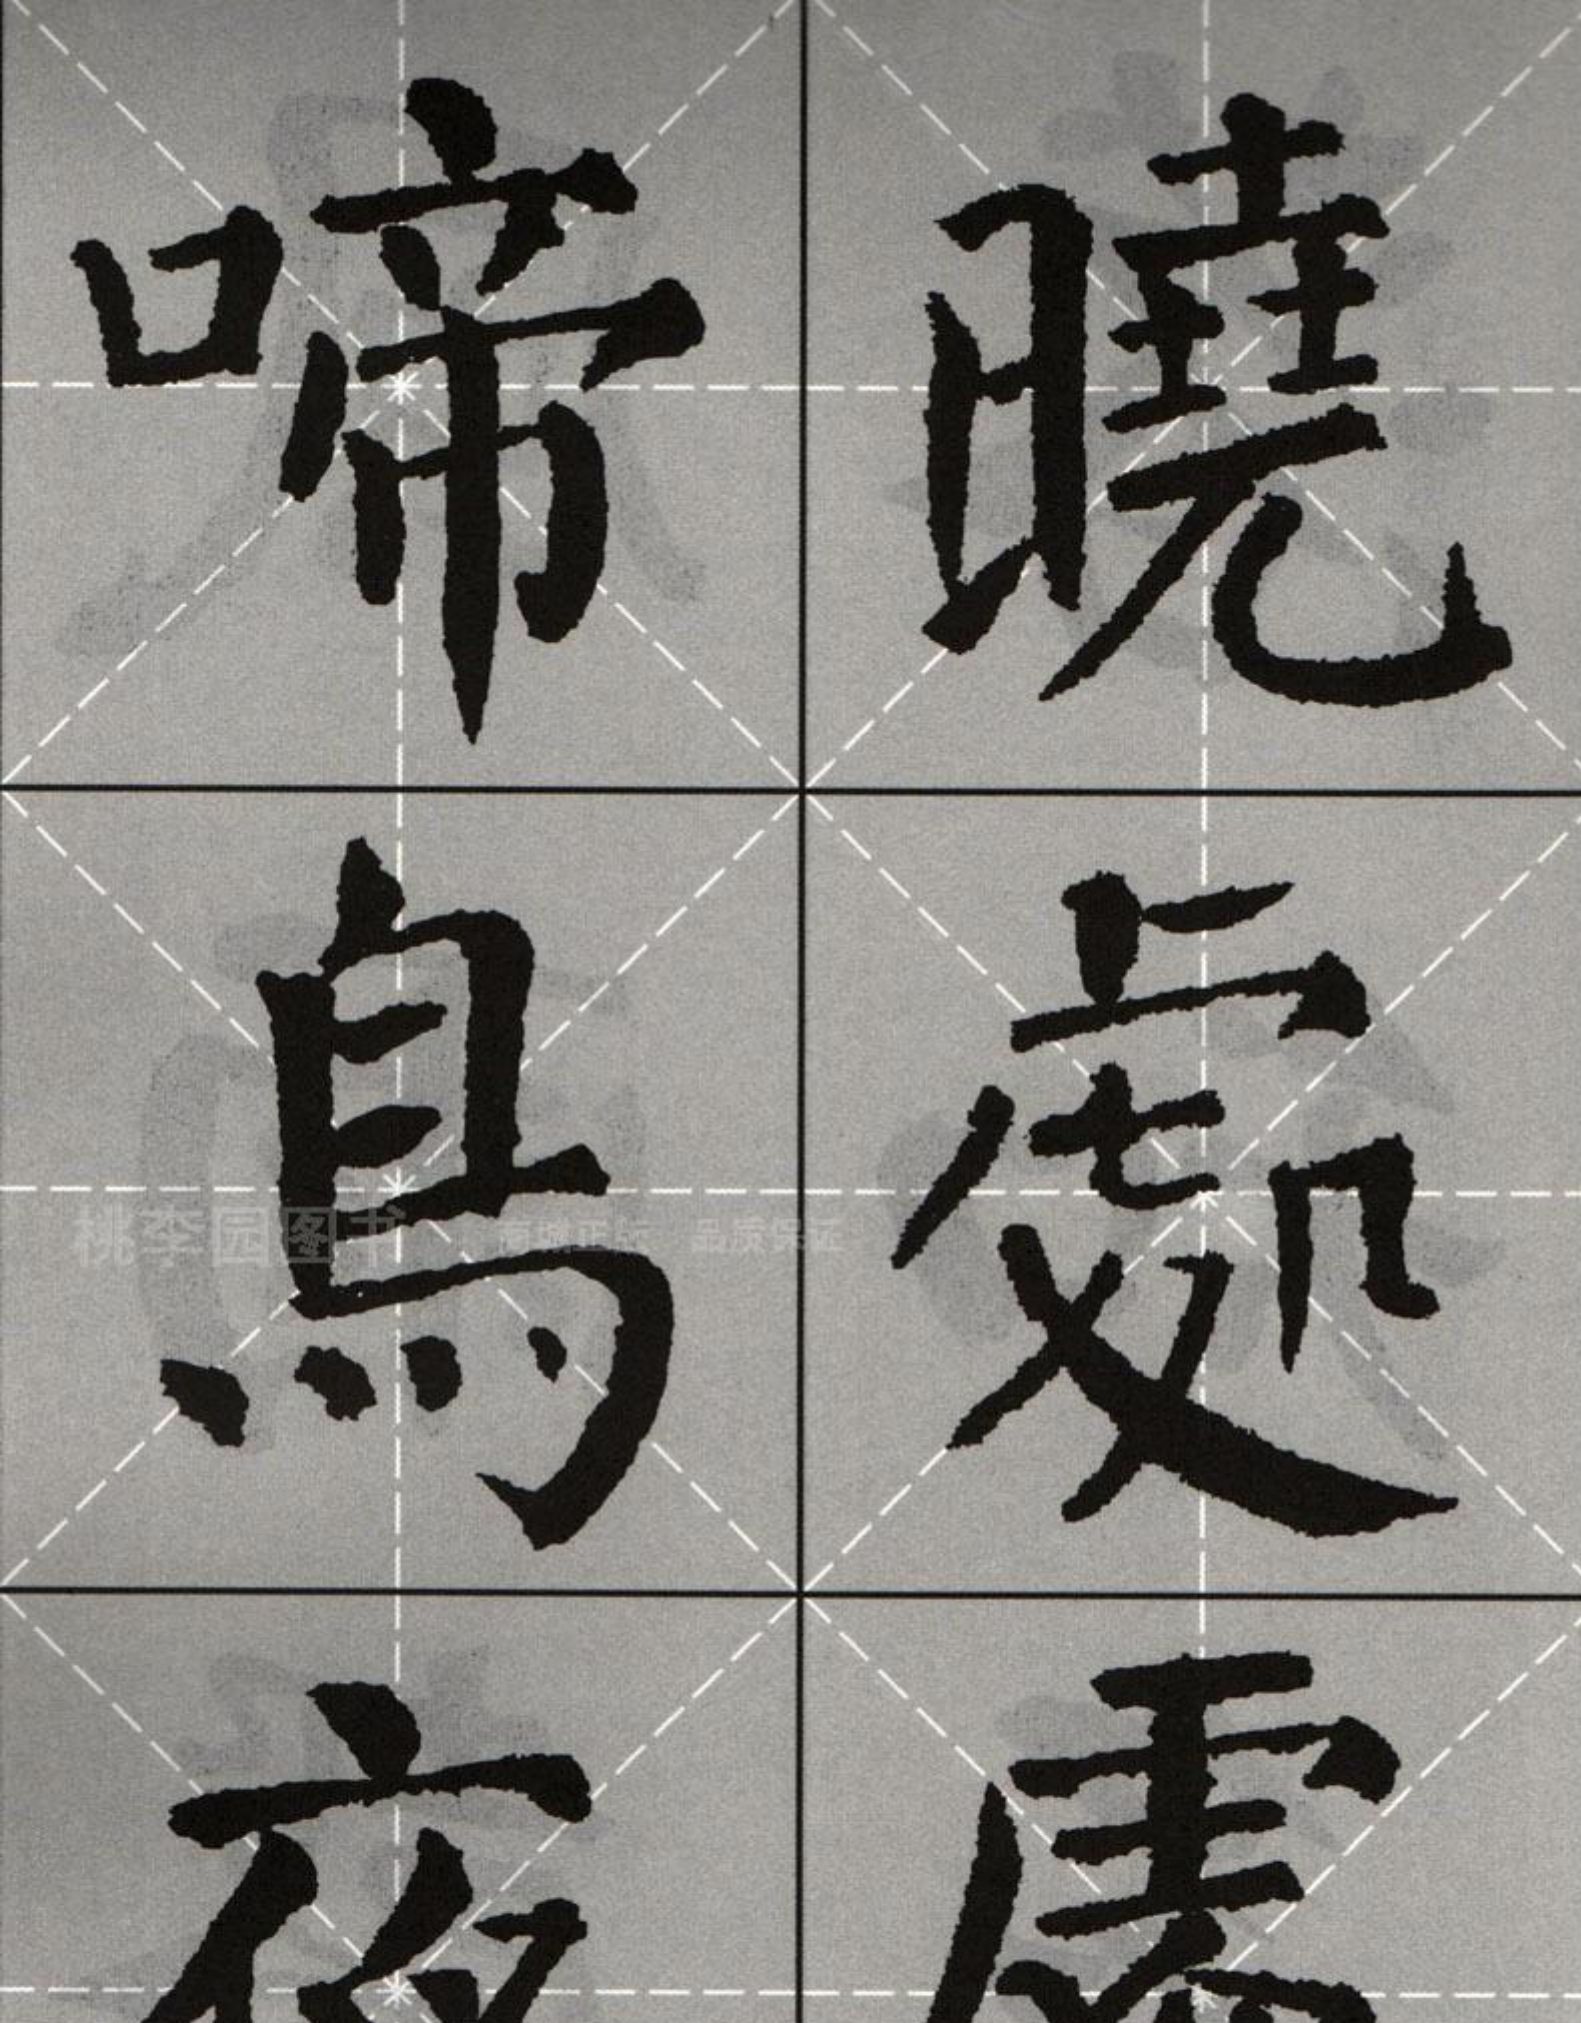 曉處處
啼鳥夜
桃李园图书 正版 品质保证